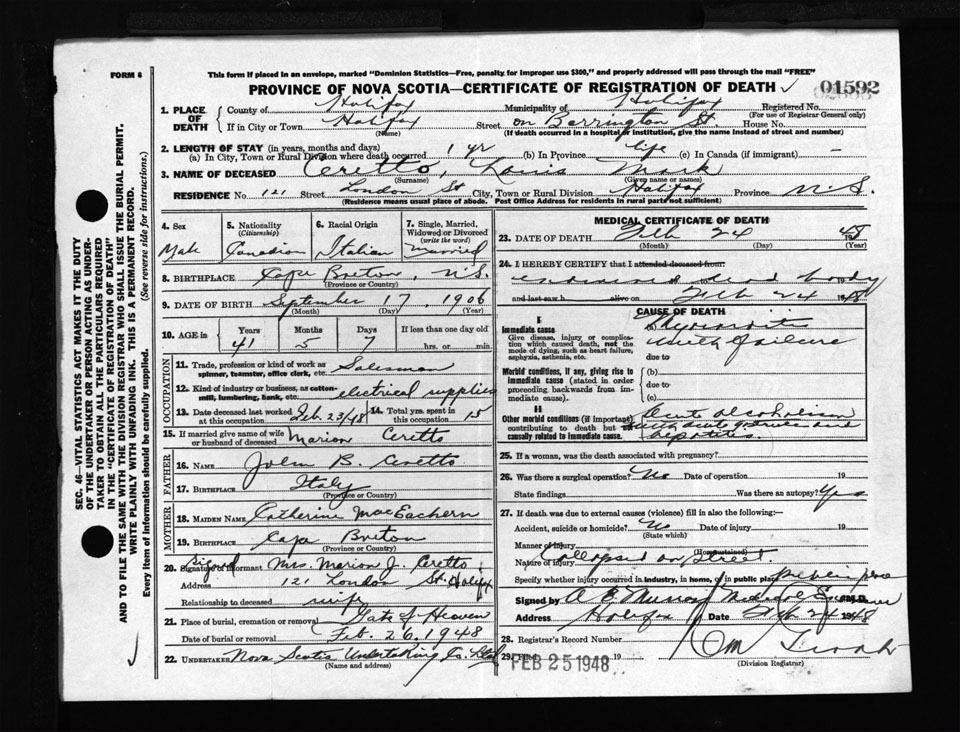 FORM 6
This form if placed in an envelope, marked "Dominion Statistics—Free, penalty for improper use $300," and properly addressed will pass through the mail "FREE"
PROVINCE OF NOVA SCOTIA—CERTIFICATE OF REGISTRATION OF DEATH
01592
1. PLACE OF DEATH
County of Halifax Municipality of Halifax Registered No.
(For use of Registrar General only)
If in City or Town Halifax Street on Barrington St. House No.
(Name) (If death occurred in a hospital or institution, give the name instead of street and number)
2. LENGTH OF STAY (in years, months and days)
(a) In City, Town or Rural Division where death occurred 1 yr (b) In Province life (c) In Canada (if immigrant) —
3. NAME OF DECEASED Ceretto, Louis Mark
(Surname) (Given name or names)
RESIDENCE No. 121 Street London St City, Town or Rural Division Halifax Province N.S.
(Residence means usual place of abode. Post Office Address for residents in rural parts not sufficient)
4. Sex
Male
5. Nationality (Citizenship)
Canadian
6. Racial Origin
Italian
7. Single, Married, Widowed or Divorced (write the word)
Married
8. BIRTHPLACE Cape Breton, N.S.
(Province or Country)
9. DATE OF BIRTH September 17, 1906
(Month) (Day) (Year)
10. AGE in Years Months Days If less than one day old
41 5 7 hrs. or min.
OCCUPATION
11. Trade, profession or kind of work as spinner, teamster, office clerk, etc. Salesman
12. Kind of industry or business, as cotton-mill, lumbering, bank, etc. electrical supplies
13. Date deceased last worked at this occupation Feb. 23/48
14. Total yrs. spent in this occupation 15
15. If married give name of wife or husband of deceased Marion Ceretto
FATHER
16. NAME John B. Ceretto
17. BIRTHPLACE Italy
(Province or Country)
MOTHER
18. MAIDEN NAME Catherine MacEachern
19. BIRTHPLACE Cape Breton
(Province or Country)
Signed
20. Signature of informant Mrs. Marion J. Ceretto
Address 121 London St. Halifax
Relationship to deceased wife
21. Place of burial, cremation or removal Gate of Heaven
Date of burial or removal Feb. 26. 1948
22. UNDERTAKER Nova Scotia Undertaking Co. Ltd
(Name and address)
MEDICAL CERTIFICATE OF DEATH
23. DATE OF DEATH Feb 24 1948
(Month) (Day) (Year)
24. I HEREBY CERTIFY that I attended deceased from:
examined dead body
and last saw h alive on Feb 24 1948
CAUSE OF DEATH
I
Immediate cause
Give disease, injury or complication which caused death, not the mode of dying, such as heart failure, asphyxia, asthenia, etc.
(a) Myocarditis
with failure
due to
Morbid conditions, if any, giving rise to immediate cause (stated in order proceeding backwards from immediate cause).
(b)
due to
(c)
II
Other morbid conditions (if important) contributing to death but not causally related to immediate cause.
Acute alcoholism
with acute gastritis and
hepatitis.
25. If a woman, was the death associated with pregnancy?
26. Was there a surgical operation? No Date of operation 19
State findings Was there an autopsy? Yes
27. If death was due to external causes (violence) fill in also the following:—
Accident, suicide or homicide? No Date of injury 19
(State which)
Manner of injury
(How sustained)
Nature of injury Collapsed on street
Specify whether injury occurred in industry, in home, or in public place public place
Signed by A B Murray Medical Examiner M.D.
Address Halifax Date Feb 24 1948
28. Registrar's Record Number
29. Filed FEB 25 1948 19
(Division Registrar)
SEC. 46—VITAL STATISTICS ACT MAKES IT THE DUTY
OF THE UNDERTAKER OR PERSON ACTING AS UNDERTAKER TO OBTAIN ALL THE PARTICULARS REQUIRED
IN THE "CERTIFICATE OF REGISTRATION OF DEATH"
AND TO FILE THE SAME WITH THE DIVISION REGISTRAR WHO SHALL ISSUE THE BURIAL PERMIT.
WRITE PLAINLY WITH UNFADING INK. THIS IS A PERMANENT RECORD.
Every item of information should be carefully supplied. (See reverse side for instructions.)